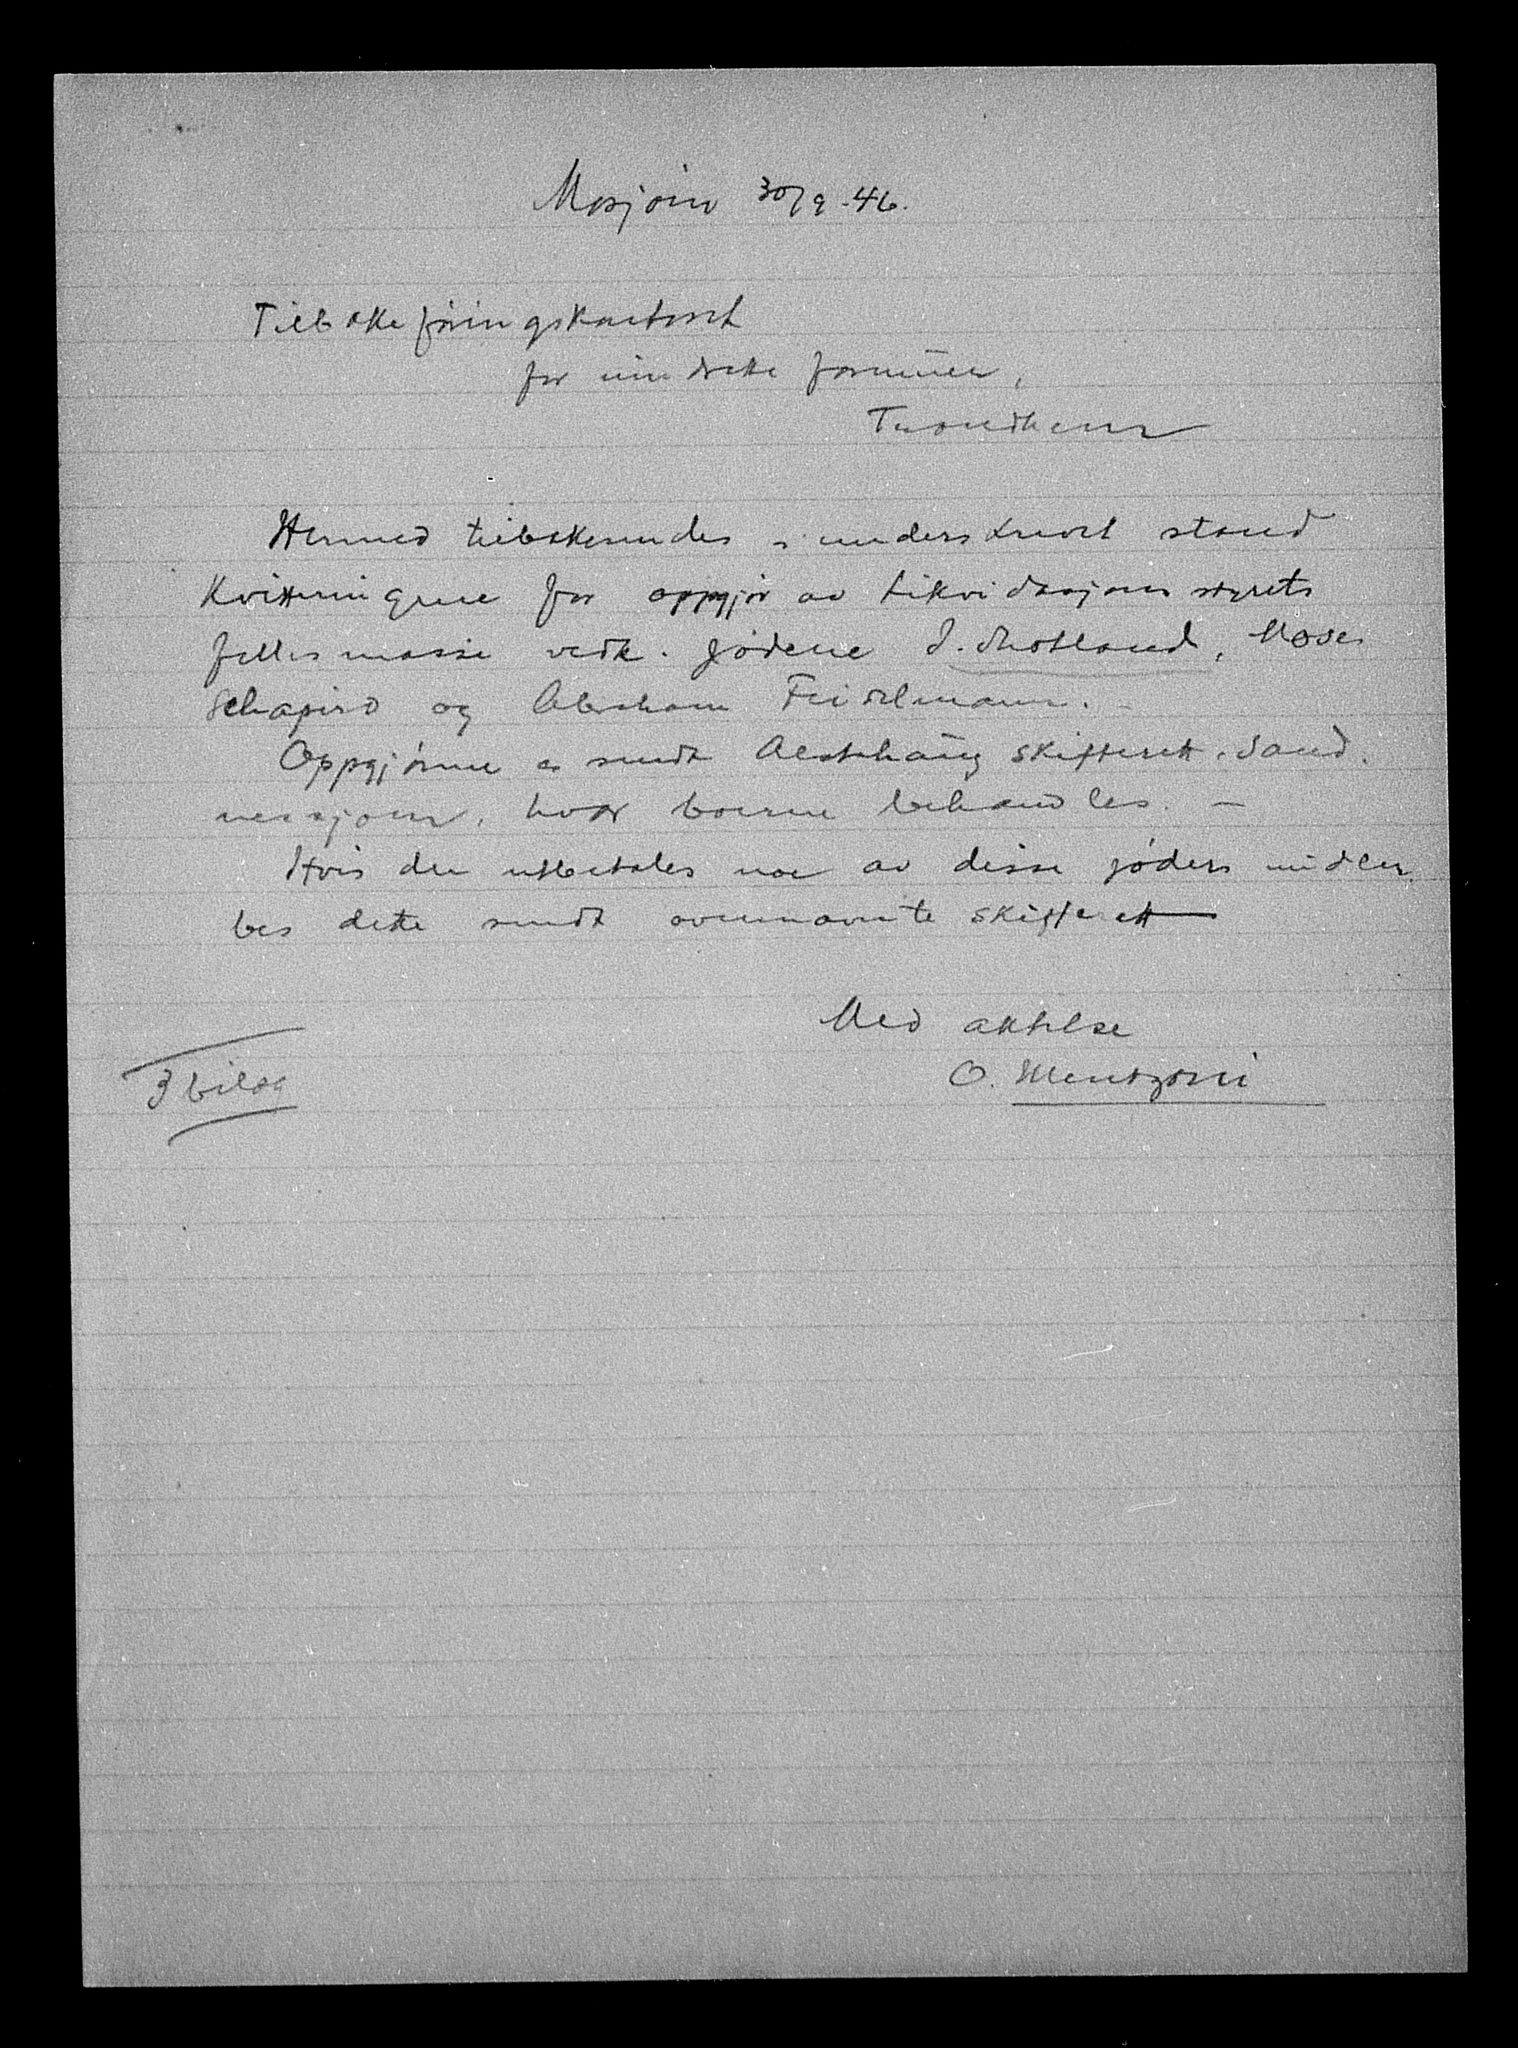 Mosjøen 30/9-46.
Tilbakeføringskontoret
for inndratte formuer,
Trondheim
Hermed tilbakesendes i underskrevet stand
kvitteringene for oppgjør av Likvidasjonsstyrets
fellesmasse vedk. jødene I. Shotland, Moses
Schapiro og Abraham Feidelmann.
Oppgjørene er sendt Alstahaug skifterett, Sand-
nessjøen, hvor boerne behandles. —
Hvis der utbetales noe av disse jøders midler,
bes dette sendt ovennevnte skifterett
Med aktelse
O. Mentzoni
3 bilag